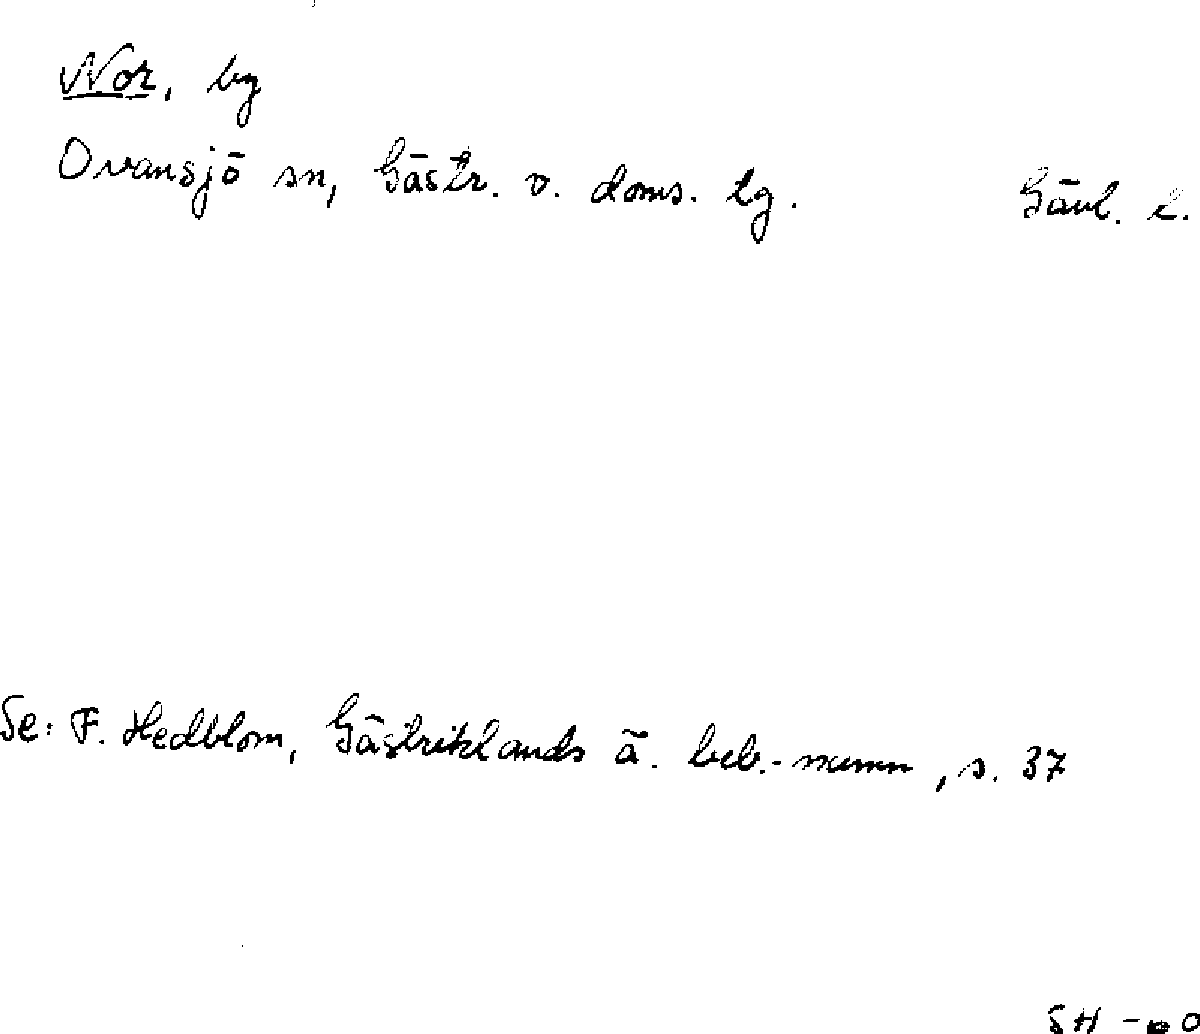 Nor, by
Ovansjö sn, Gästr. v. doms. lg. Gävl. l.
Se: F. Hedblom, Gästriklands ä. beb.-namn, s. 37
SH